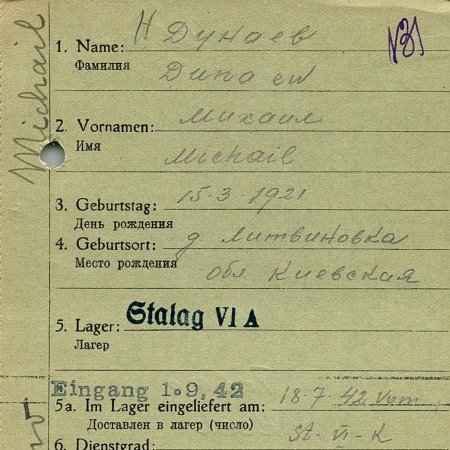 Michail
N31
1. Name: Н Дунаев
Фамилия Dunaew
2. Vornamen: Михаил
Имя Michail
3. Geburtstag: 15.3.1921
День рождения
4. Geburtsort: д. Литвиновка
Место рождения обл. Киевская
5. Lager: Stalag VI A
Лагер
Eingang 1. 9. 42
5a. Im Lager eingeliefert am: 18.7.42 vom
Доставлен в лагер (число) St-VI-K
6. Dienstgrad: